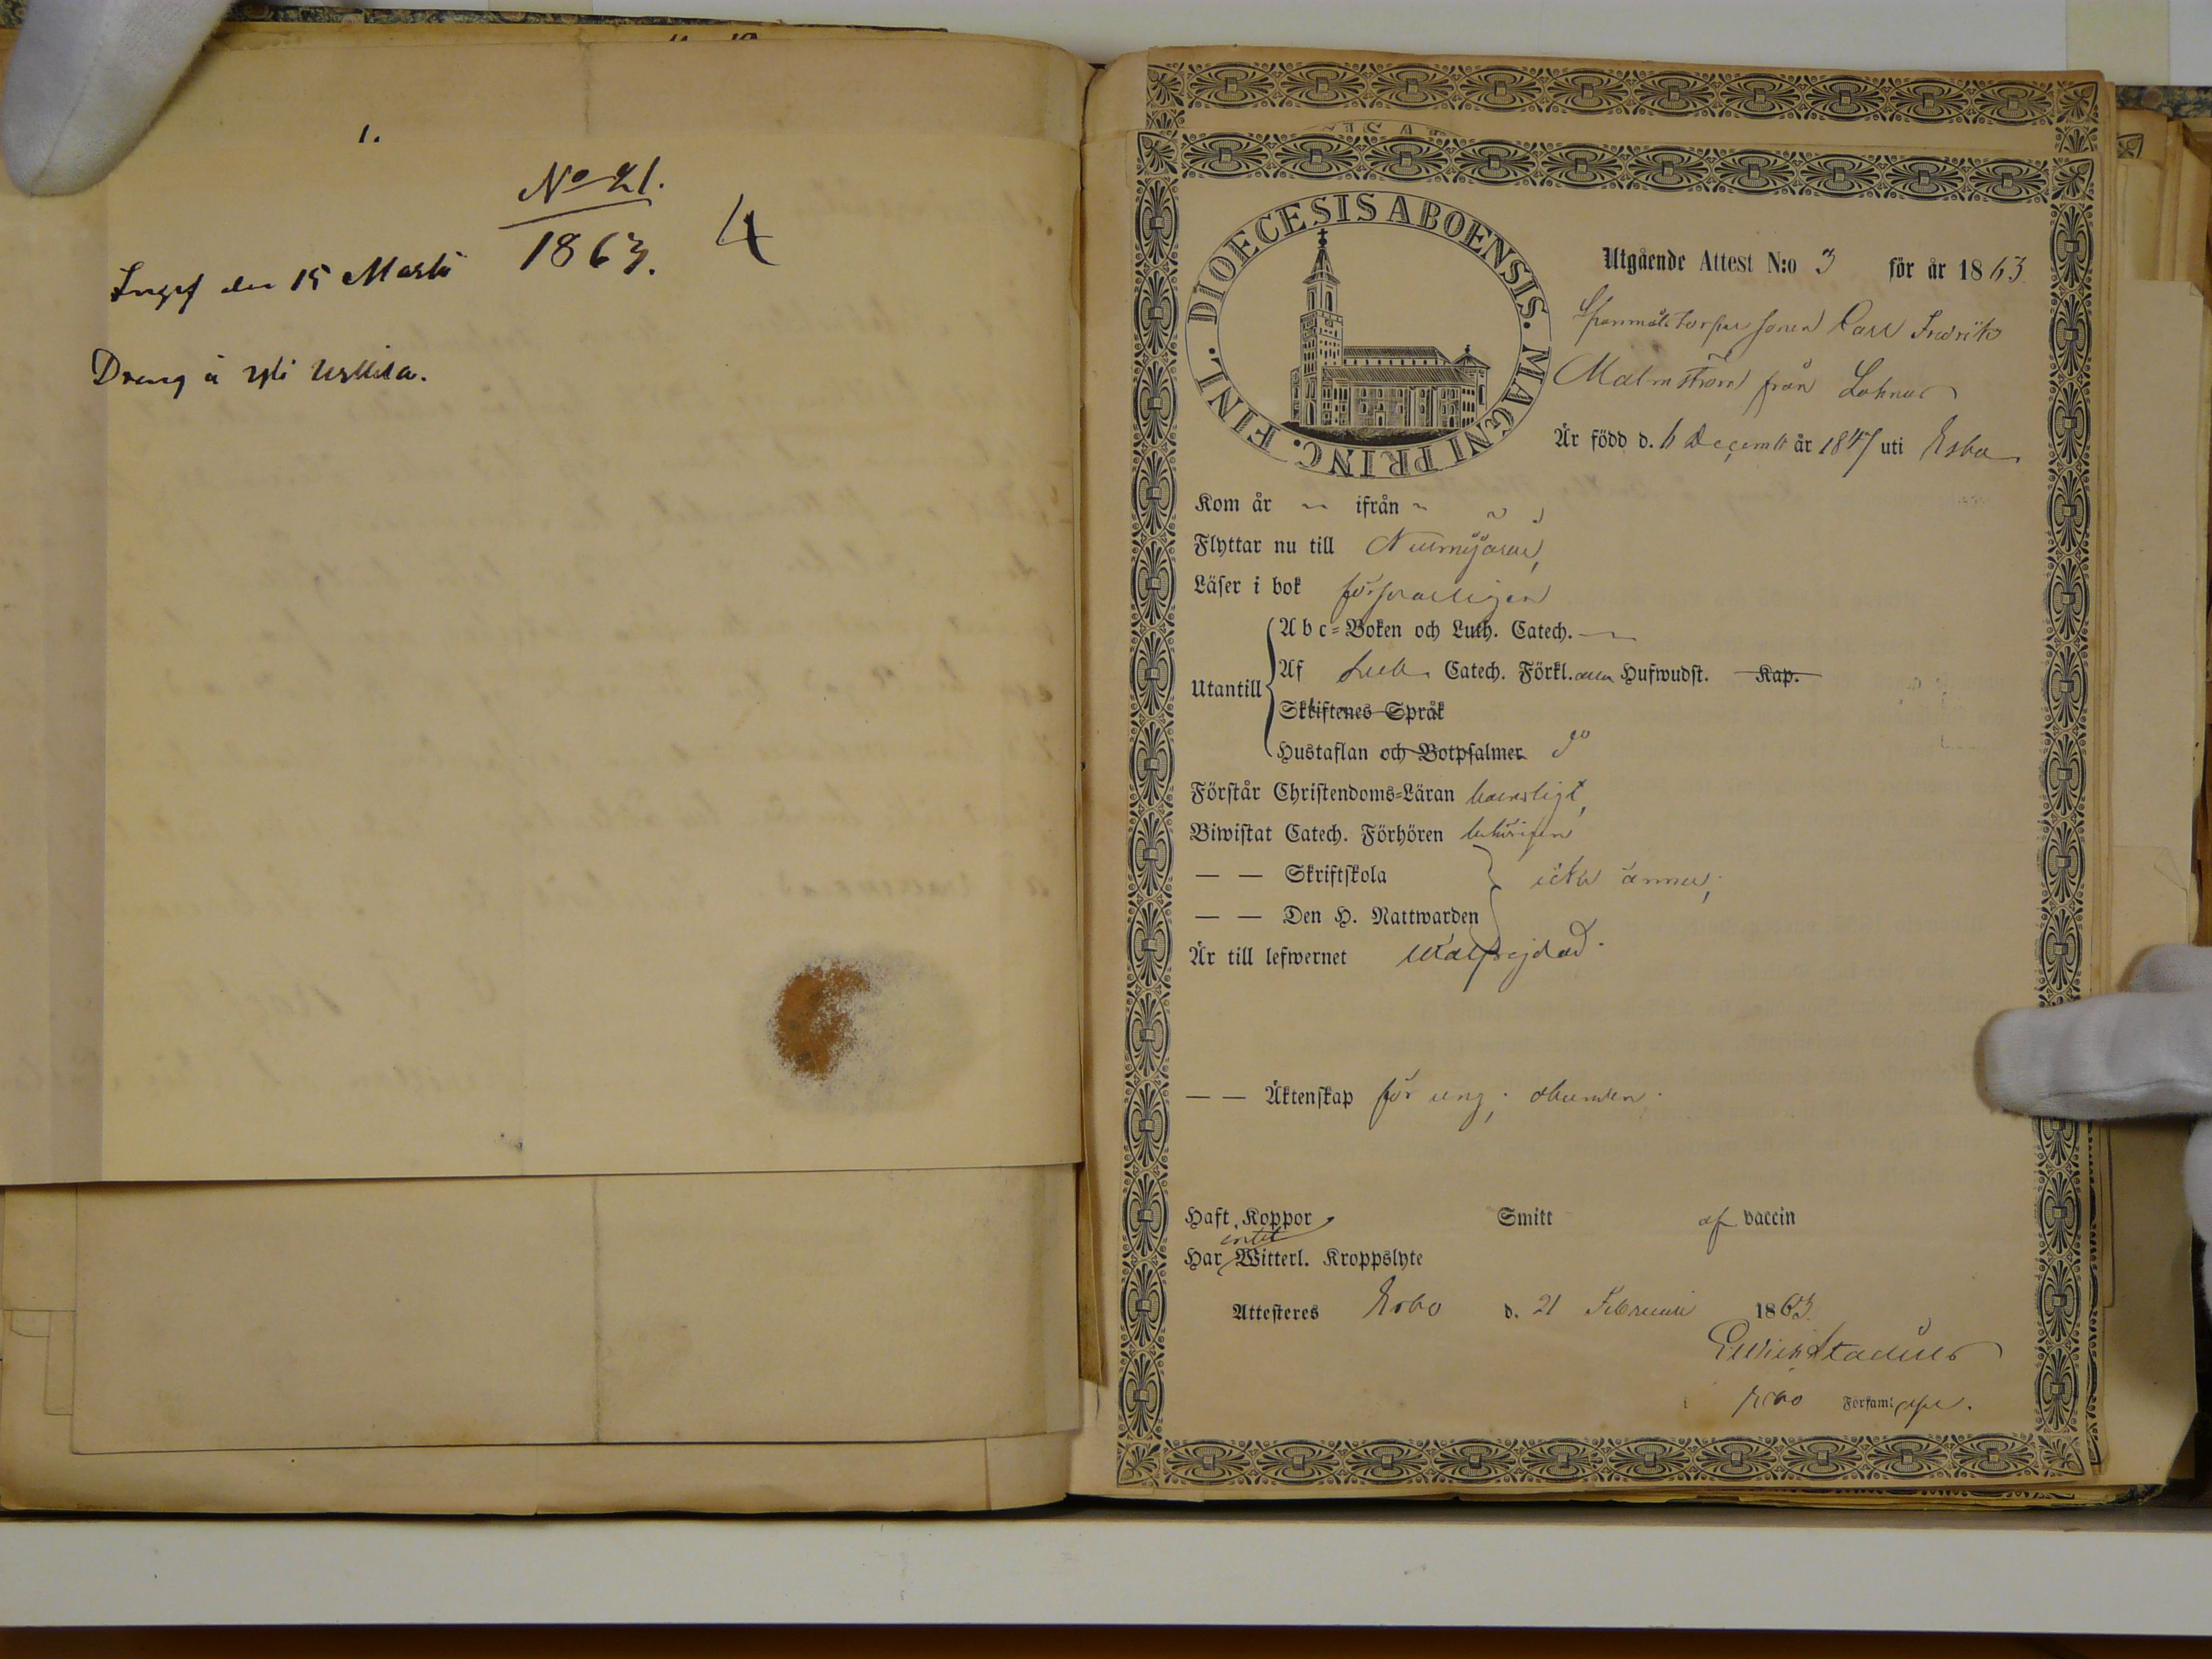 1.
No 21.
1863.
4
den 15 Martii
Dreng å Yli Uskila.
DIOECESIS ABOENSIS. MAGNI PRINC. FINL.
Utgående Attest N:o 3 för år 1863.
sonen Carl Fredrik
Malmström från Lahnus
Är född d. 6 Decemb år 1847 uti Esbo
Kom år " ifrån "
Flyttar nu till Nurmijärvi,
Läser i bok försvarligen
Utantill
Abc-Boken och Luth. Catech. —
Af Luth Catech. Förkl. alla Hufwudst. Kap.
Skriftenes Språk
Hustaflan och Botpsalmer do
Förstår Christendoms-Läran
Biwistat Catech. Förhören behörigen
— — Skriftskola
icke ännu,
— — Den H. Nattwarden
Är till lefwernet wälfrejdad.
— — Äktenskap för ung; obunden.
Haft Koppor Smitt af vaccin
intet
Har Witterl. Kroppslyte
Attesteras Esbo d. 21 Februari 1863.
Stadius
i Esbo Församl